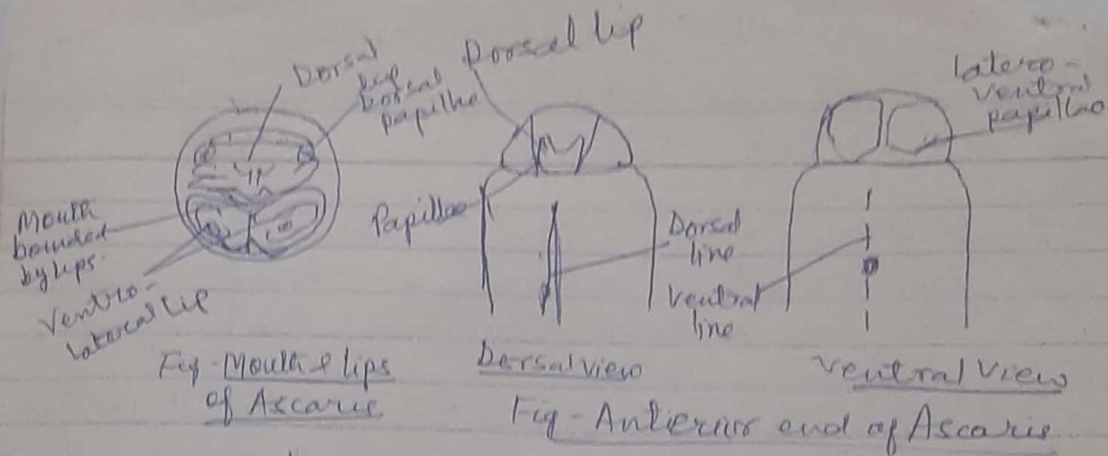 Dorsal
lip
Dorsal
papillae
Mouth
bounded
by lips
Ventro-
lateral lip
Fig-Mouth & lips
of Ascaris
Dorsal lip
Papillae
Dorsal
line
Ventral
line
Dorsal view
latero-
ventral
papillae
Ventral View
Fig-Anterior end of Ascaris